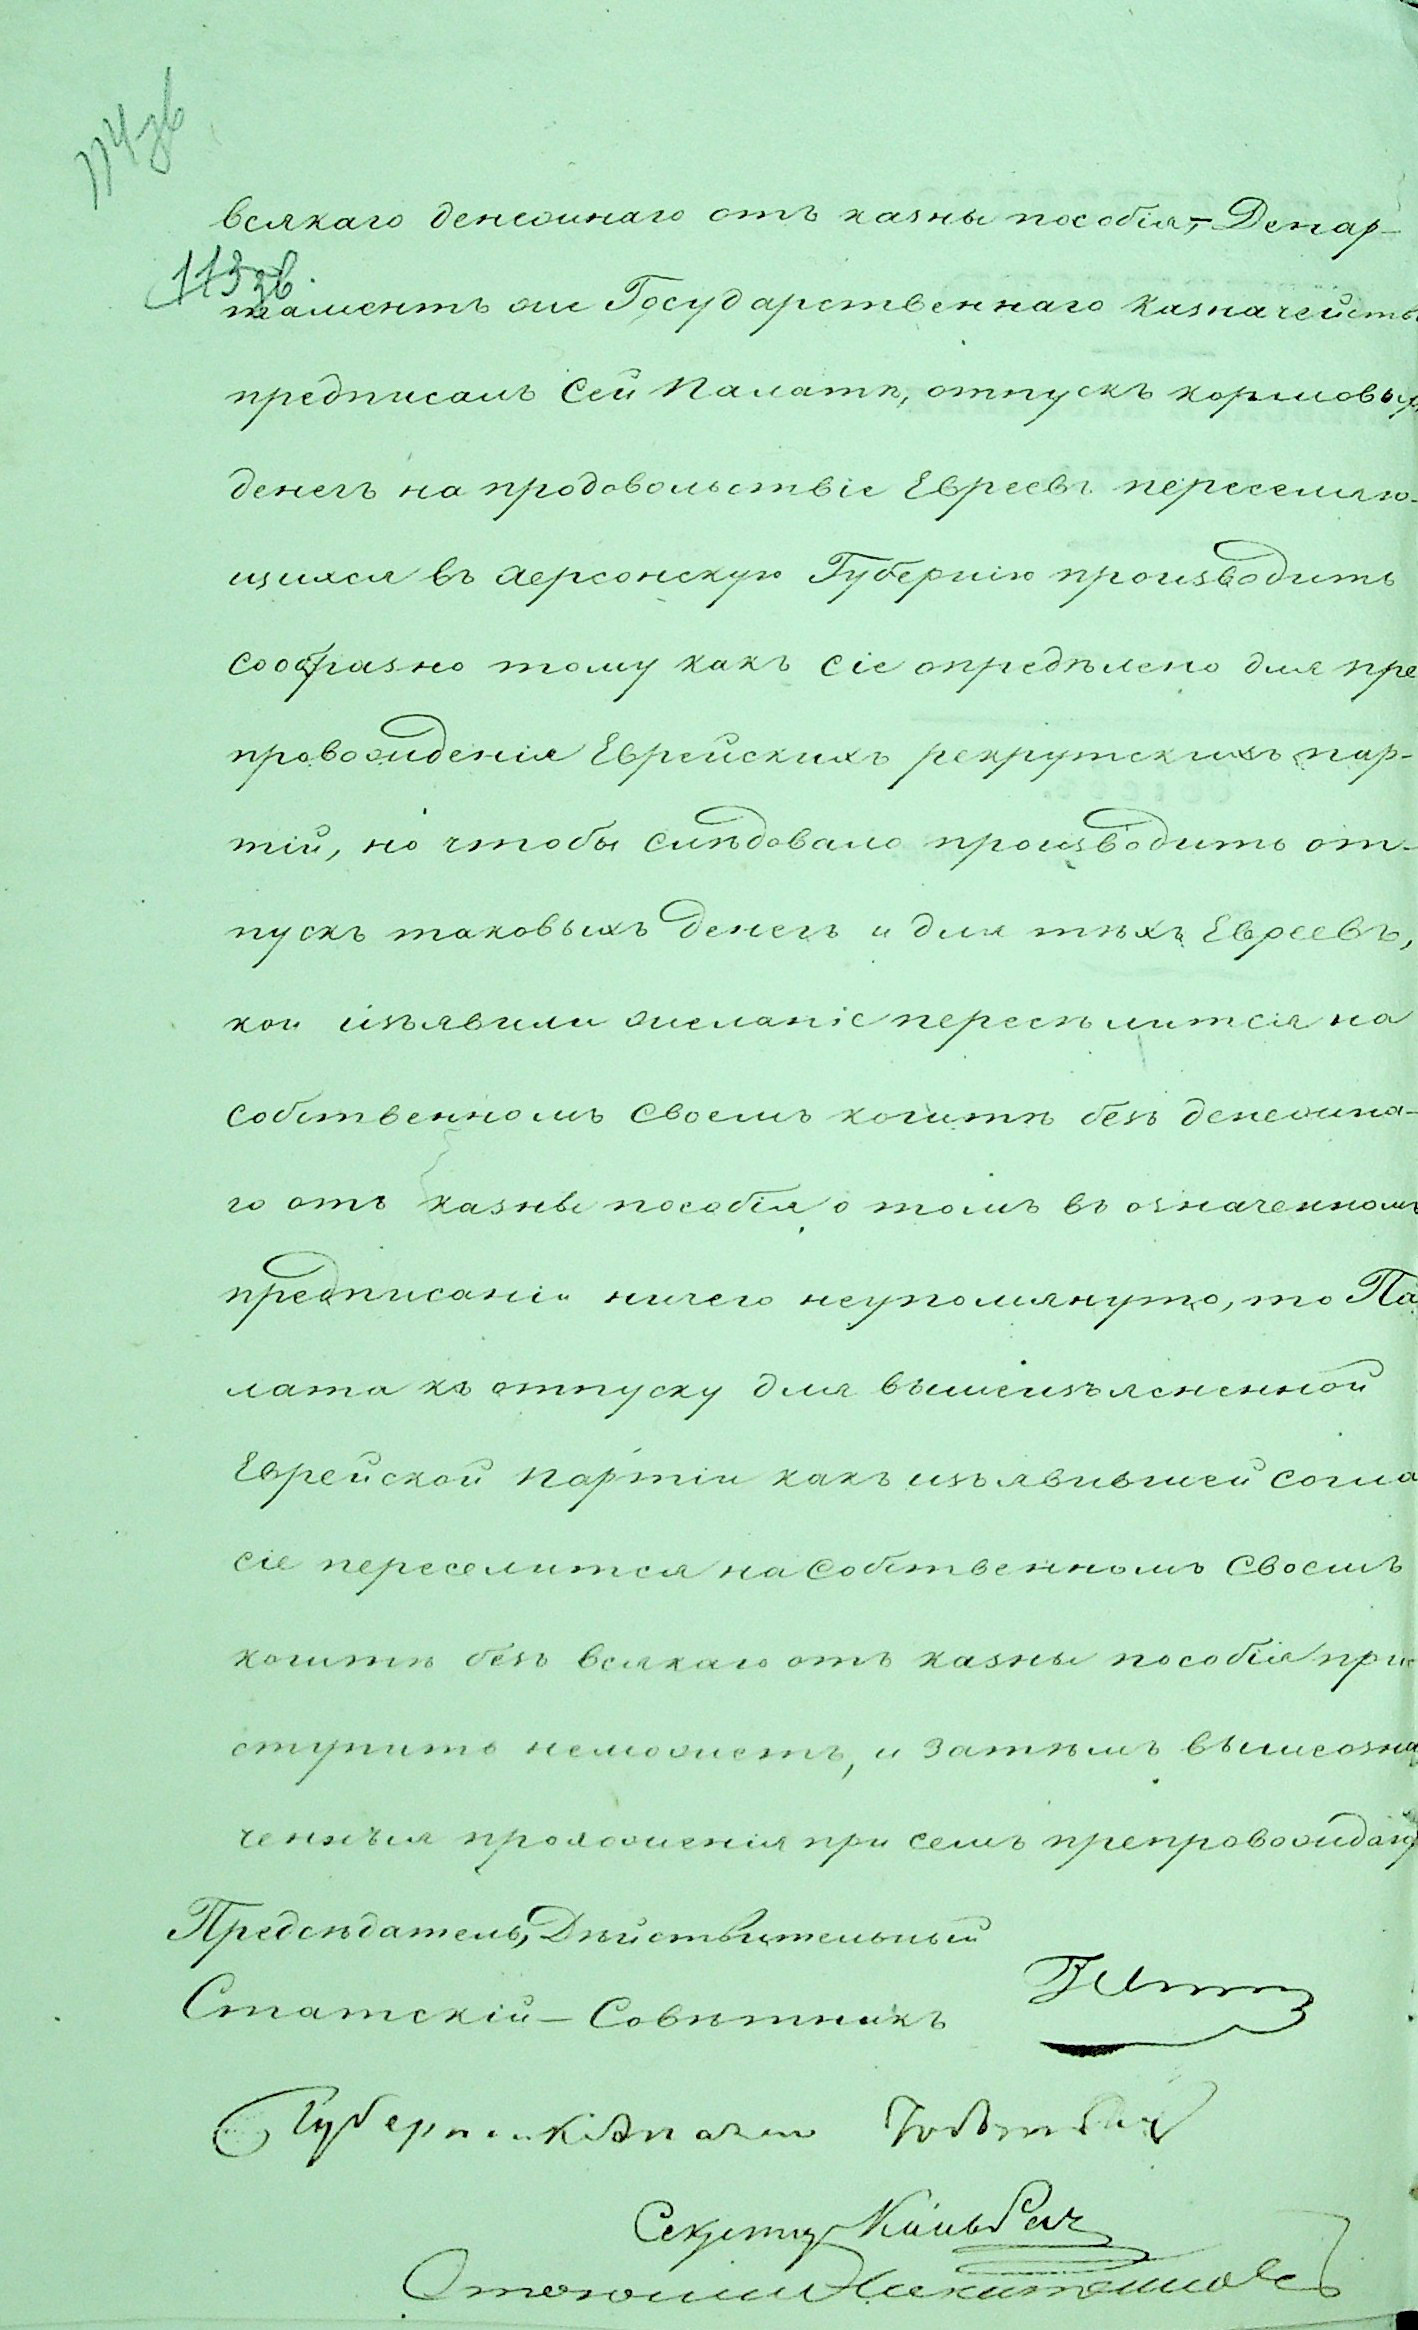 114 зв
всякаго денежнаго отъ казны пособія, — Депар-
113 зв.
таментъ же Государственнаго Казначейств
предписалъ Сей Палатѣ, отпускъ кормовых
денегъ на продовольствіе Евреевъ переселяю-
щихся въ Херсонскую Губернію производить
сообразно тому какъ сіе опредѣлено для пре
провожденія Еврейскихъ рекрутскихъ пар-
тій, но чтобы слѣдовало производить от-
пускъ таковыхъ денегъ и для тѣхъ Евреевъ,
кои изъявили желаніе пересѣлится на
собственномъ своемъ коштѣ безъ денежна-
го отъ казны пособія о томъ въ означенномъ
предписаніи ничего неупомянуто, то Па
лата къ отпуску для вышеизъясненной
Еврейской партіи какъ изъявившей согла
сіе переселится на собственномъ своемъ
коштѣ безъ всякаго отъ казны пособія при
ступить неможетъ, и затѣмъ вышеозна
ченныя приложенія при семъ препровождаю
Предсѣдатель, Дѣйствительный
Статскій — Совѣтникъ
Секретарь